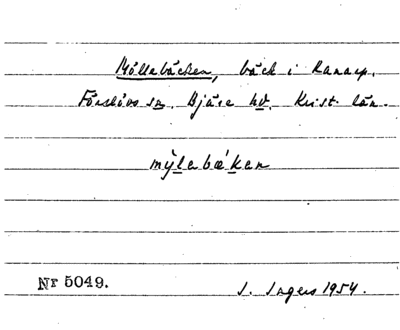 Möllebäcken, bäck i Ranarp.
Förslövs sn. Bjäre hd. Krist. län.
mýlebækan
Nr 5049.
I. Ingers 1954.